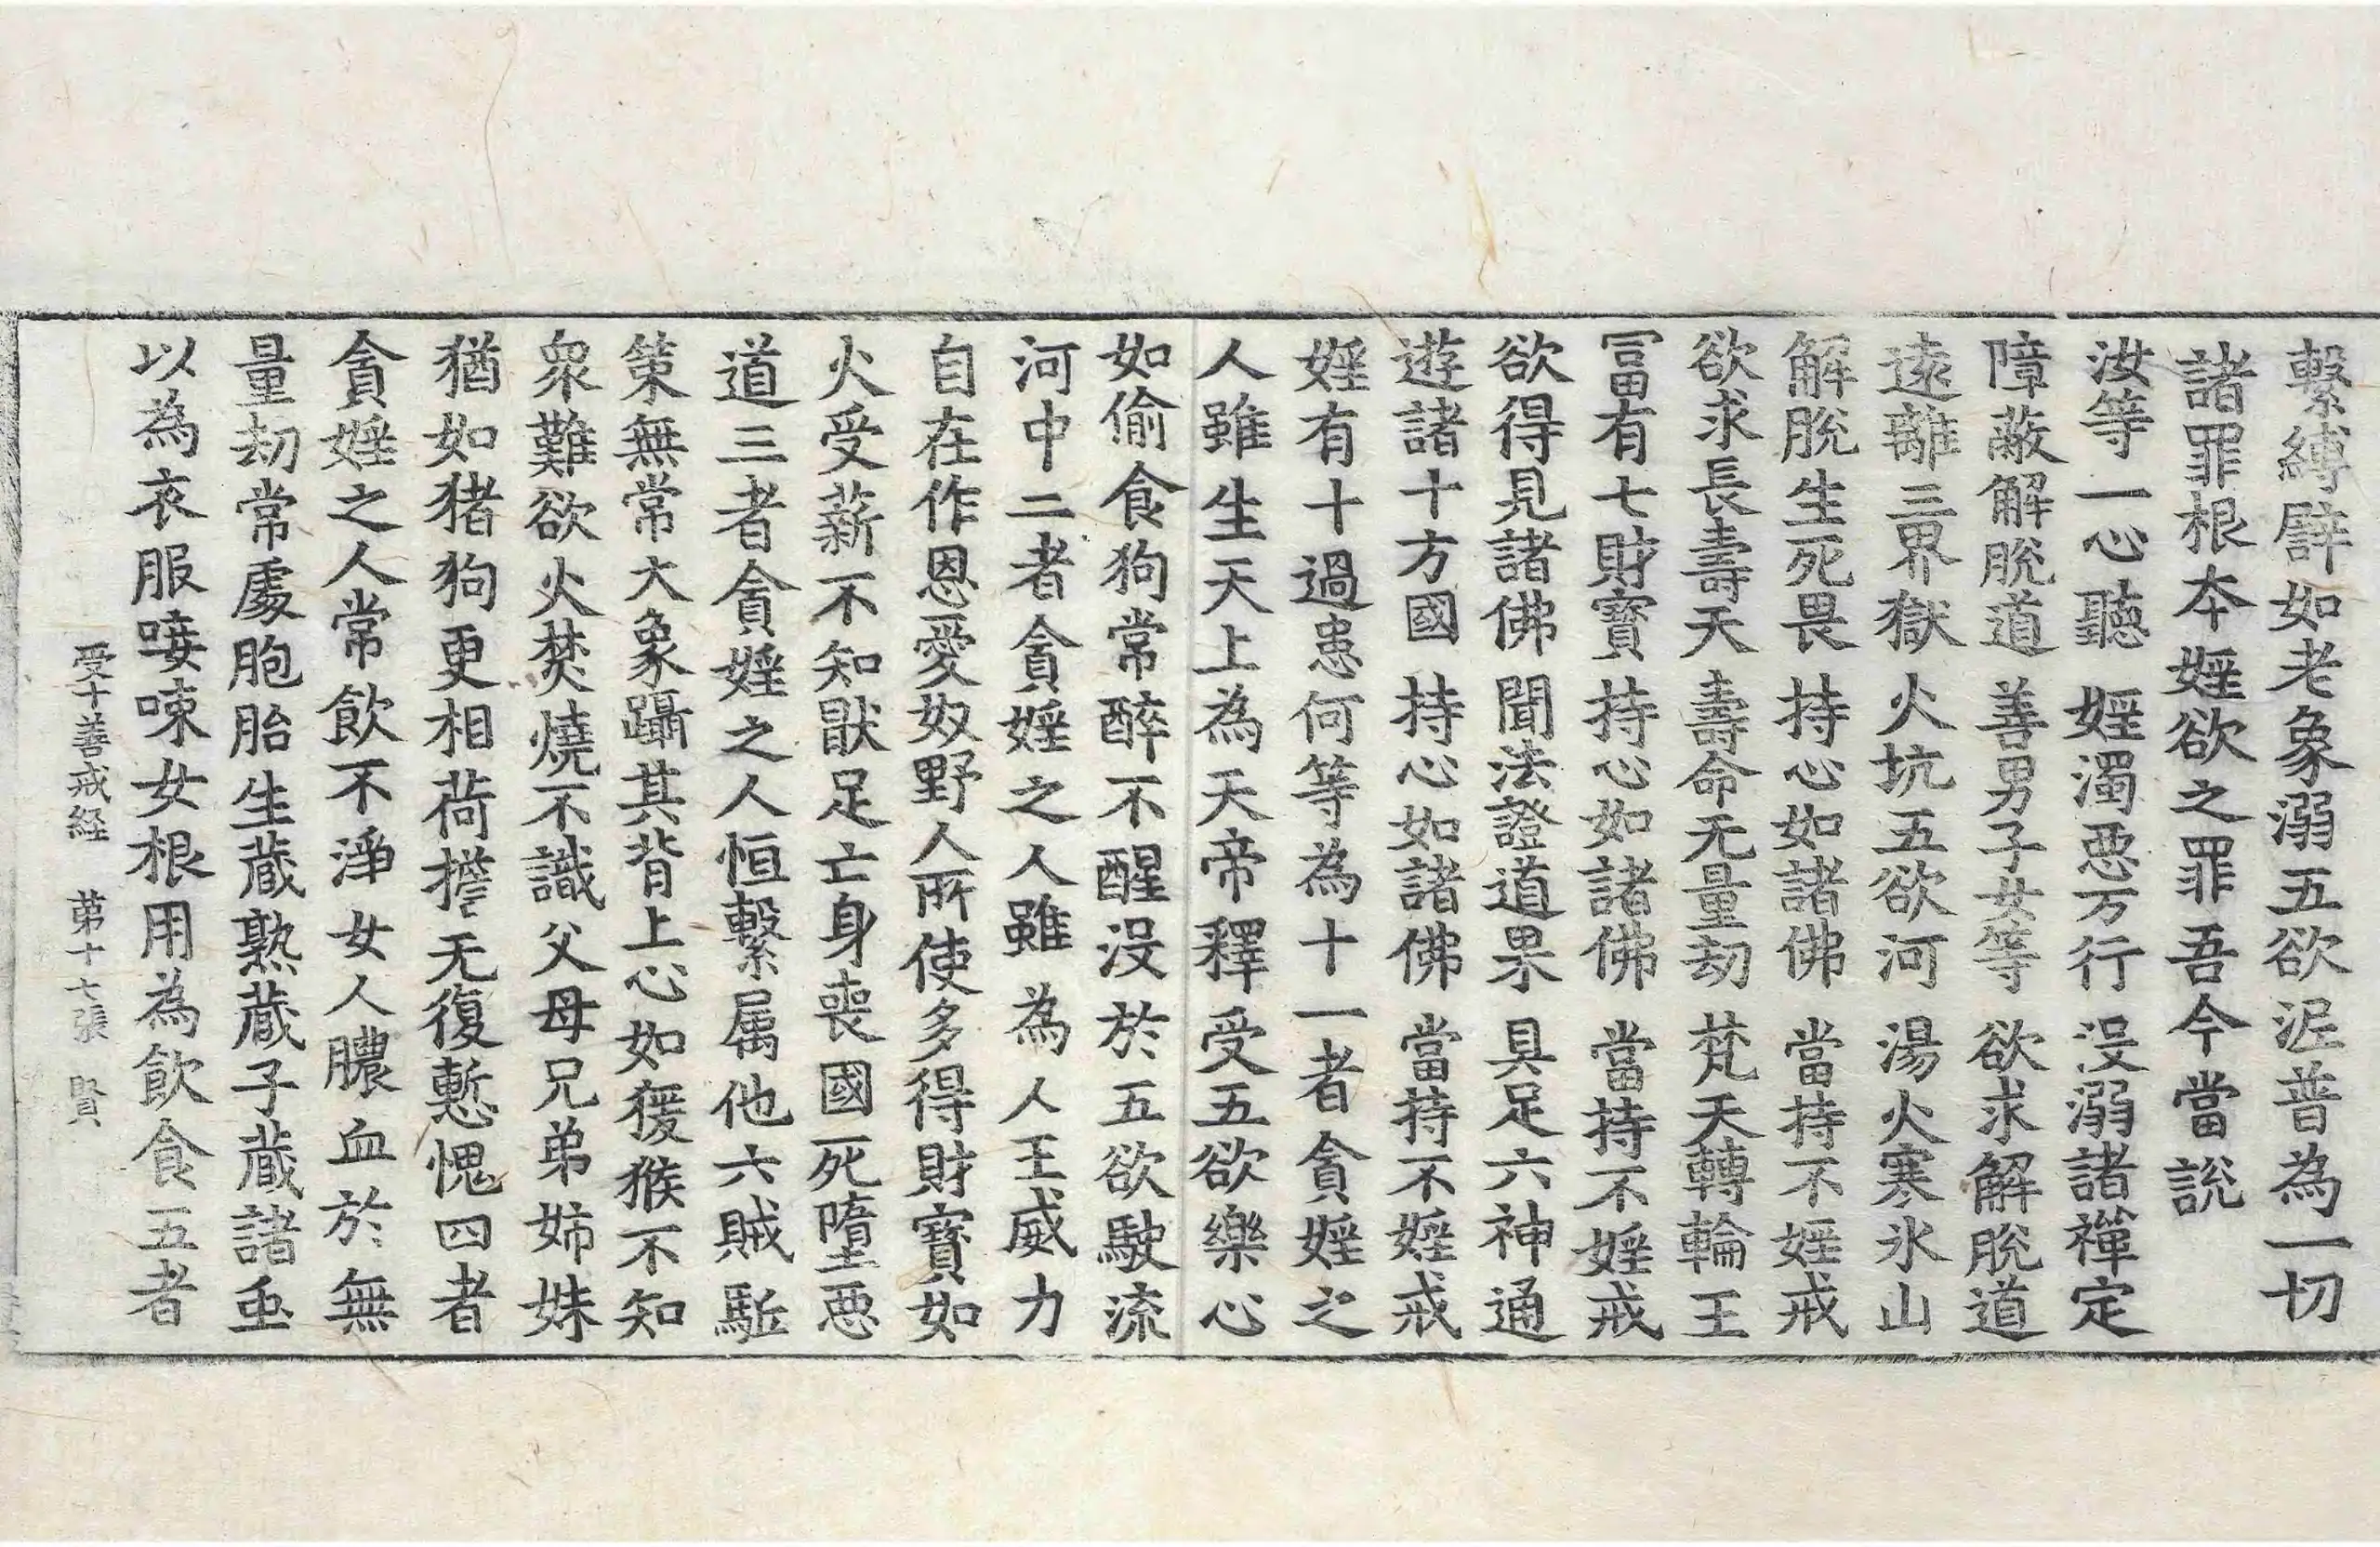 繫縛譬如老象溺五欲泥普為一切
諸罪根本婬欲之罪吾今當說
汝等一心聽 婬濁惡万行 沒溺諸禪定
障蔽解脫道 善男子女等 欲求解脫道
遠離三界獄 火坑五欲河 湯火寒氷山
解脫生死畏 持心如諸佛 當持不婬戒
欲求長壽天 壽命无量劫 梵天轉輪王
冨有七財寶 持心如諸佛 當持不婬戒
欲得見諸佛 聞法證道果 具足六神通
遊諸十方國 持心如諸佛 當持不婬戒
婬有十過患何等為十一者貪婬之
人雖生天上為天帝釋受五欲樂心
如偷食狗常醉不醒沒於五欲駛流
河中二者貪婬之人雖為人王威力
自在作恩愛奴野人所使多得財寶如
火受薪不知猒足亡身喪國死墮惡
道三者貪婬之人恒繫属他六賊駈
策無常大象躡其背上心如猨猴不知
衆難欲火焚燒不識父母兄弟姉妹
猶如猪狗更相荷擔无復慙愧四者
貪婬之人常飲不淨女人膿血於無
量劫常處胞胎生藏熟藏子藏諸䖝
以為衣服唼唻女根用為飲食五者
受十善戒経 第十七張 賢